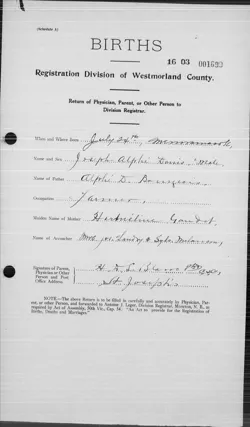 (Schedule A)
BIRTHS
16 03 001623
Registration Division of Westmorland County.
Return of Physician, Parent, or Other Person to
Division Registrar.
When and Where Born July 24th, Memramcook
Name and Sex Joseph Alphé Male
Name of Father Alphé D. Bourgeois
Occupation Farmer
Maiden Name of Mother Gaudet
Name of Accoucher Mrs Jos. Landry
Signature of Parent,
Physician or Other
Person and Post
Office Address
St. Josephs
NOTE.—The above Return is to be filled in carefully and accurately by Physician, Parent,
or other Person, and forwarded to Antoine J. Leger, Division Registrar, Moncton, N. B., as
required by Act of Assembly, 50th Vic., Cap. "An Act to provide for the Registration of
Births, Deaths and Marriages."